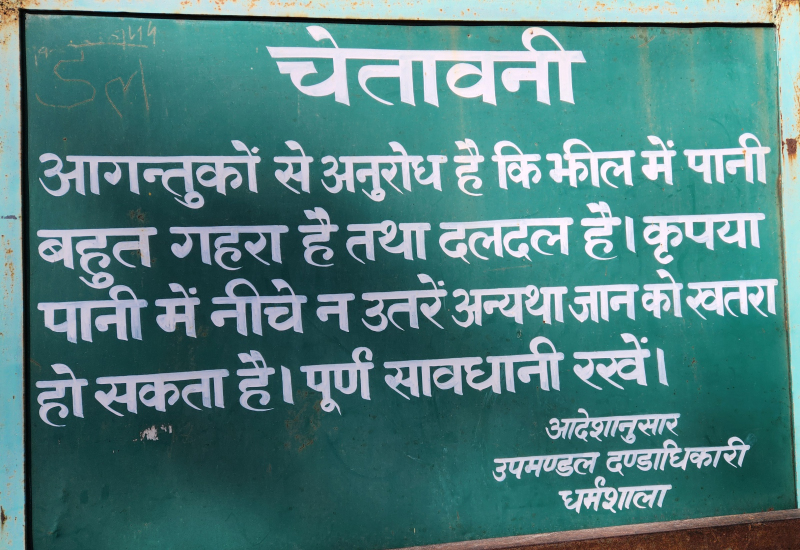 चेतावनी
आगन्तुकों से अनुरोध है कि झील में पानी
बहुत गहरा है तथा दलदल है। कृपया
पानी में नीचे न उतरें अन्यथा जान को खतरा
हो सकता है। पूर्ण सावधानी रखें।
आदेशानुसार
उपमण्डल दण्डाधिकारी
धर्मशाला